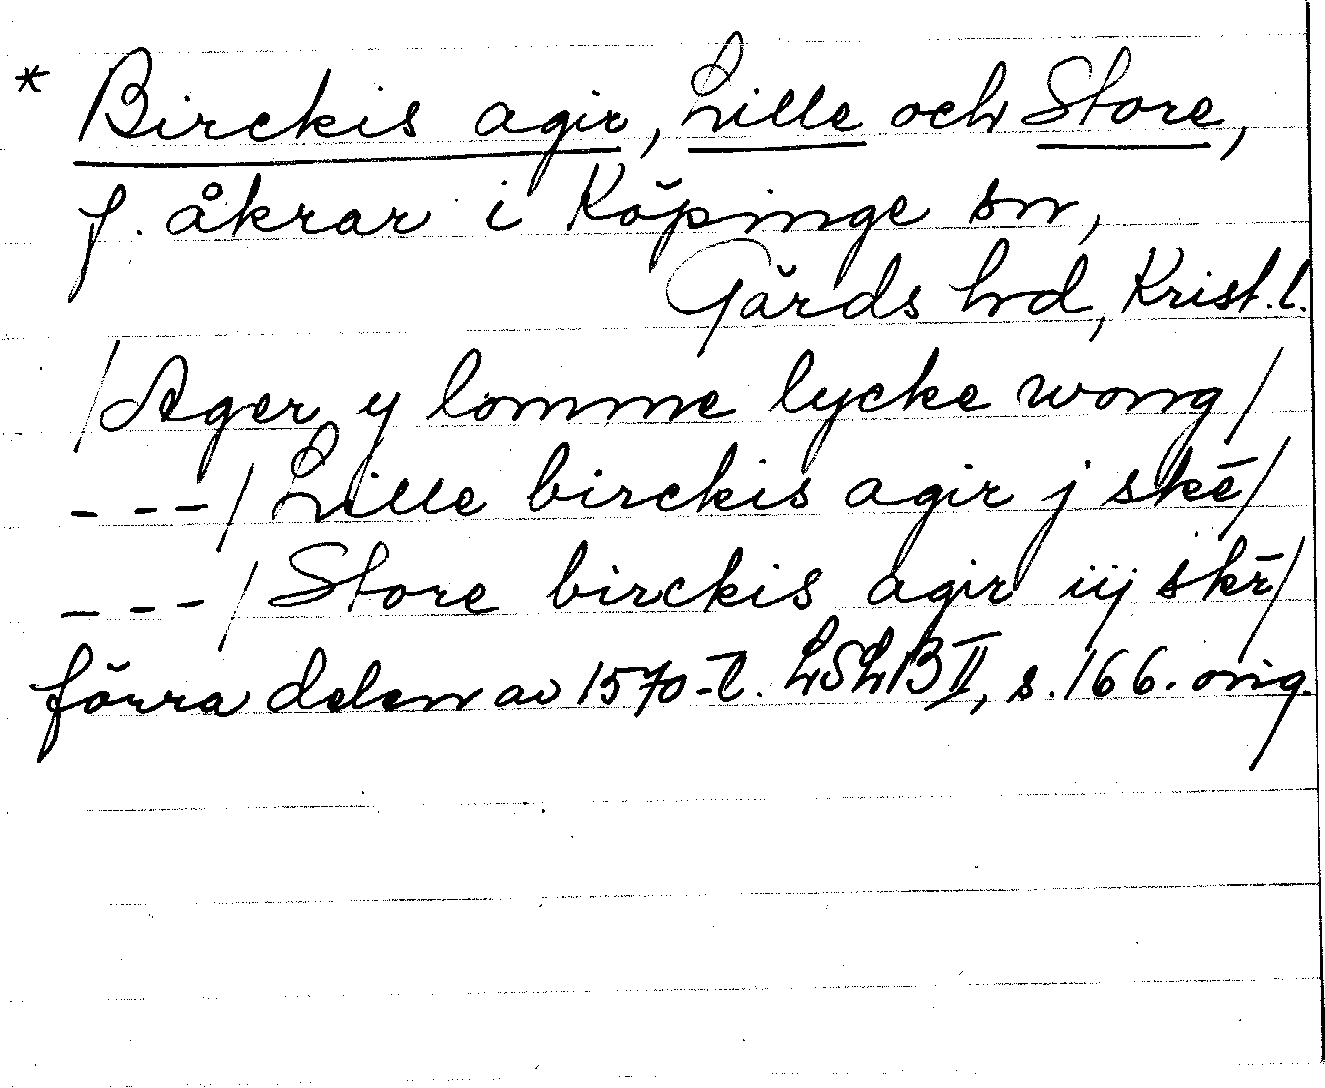 * Birckis agir, Lille och Store,
f. åkrar i Köpinge sn,
Gärds hd, Krist. l.
/Ager y lomme lycke wong/
- - -/ Lille birckis agir j skē/
- - -/ Store birckis agir iij skr̄/
förra delen av 1570-t. LSLB II, s. 166. orig.